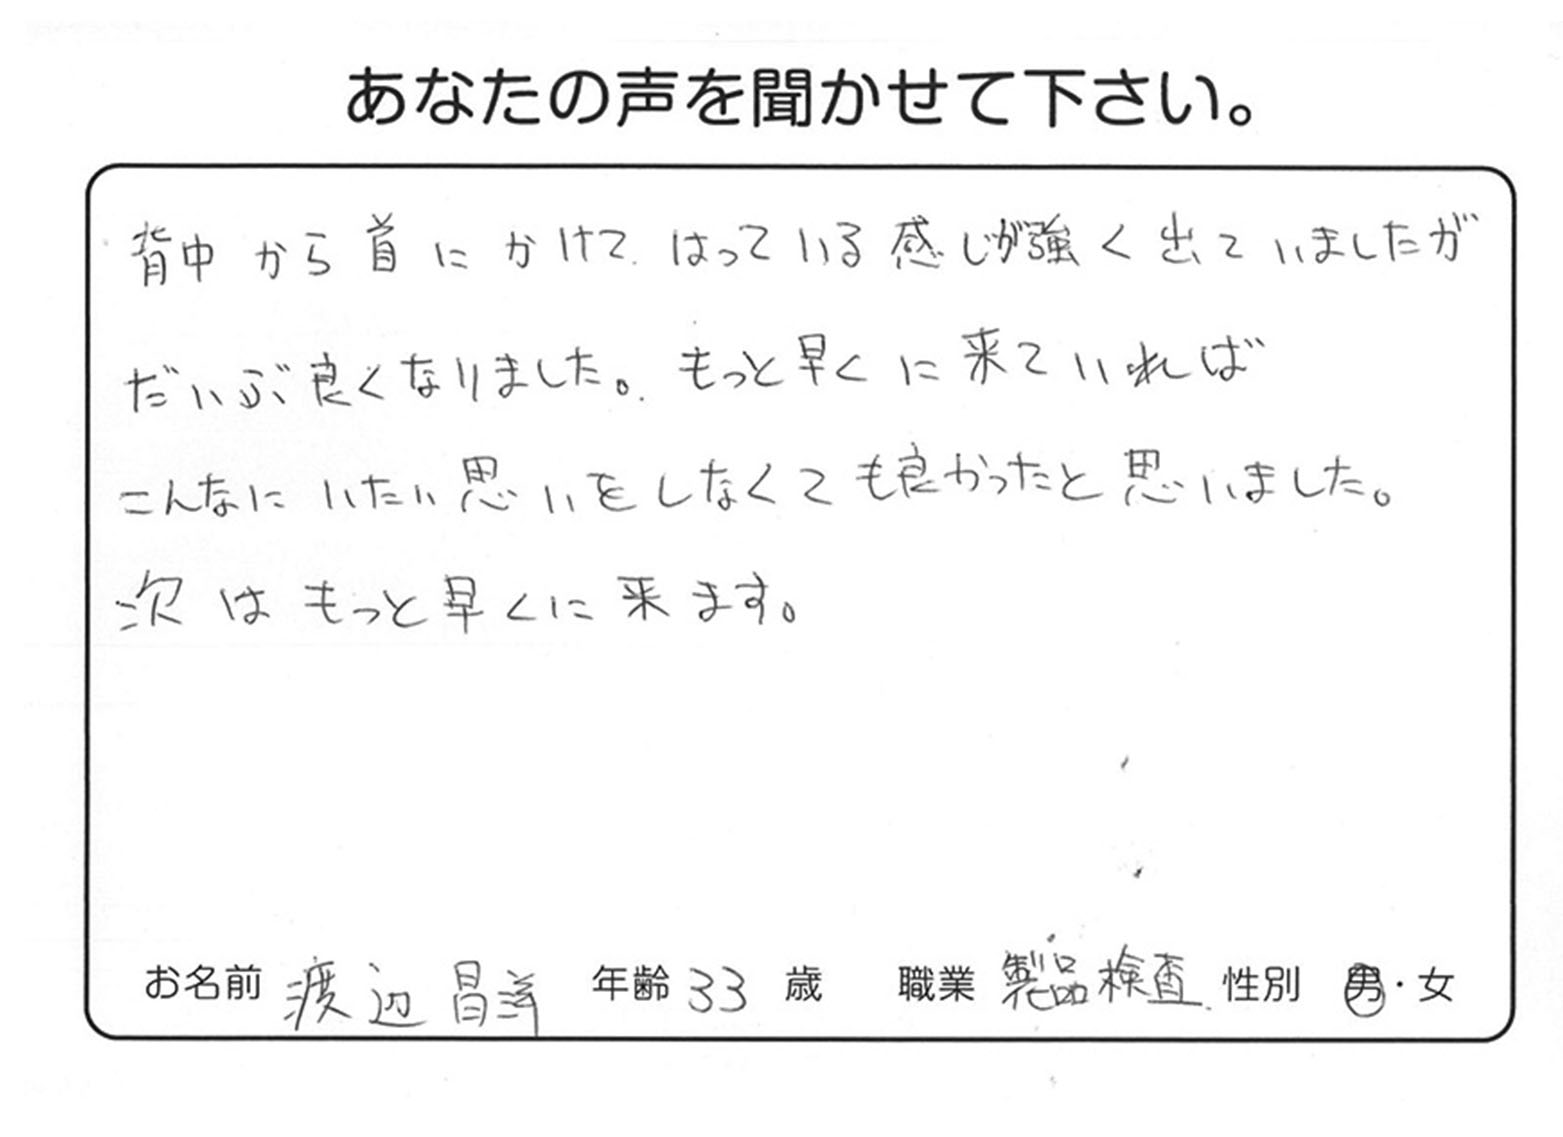 あなたの声を聞かせて下さい。
背中から首にかけてはっている感じが強く出ていましたが
だいぶ良くなりました。もっと早くに来ていれば
こんなにいたい思いをしなくても良かったと思いました。
次はもっと早くに来ます。
お名前 渡辺 昌 年齢 33 歳 職業 製品検査 性別 男・女